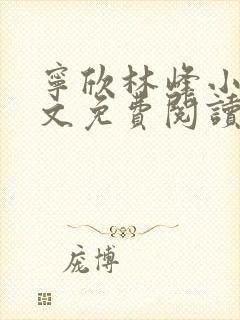 寧欣林峰小
文免費閱讀
庞博